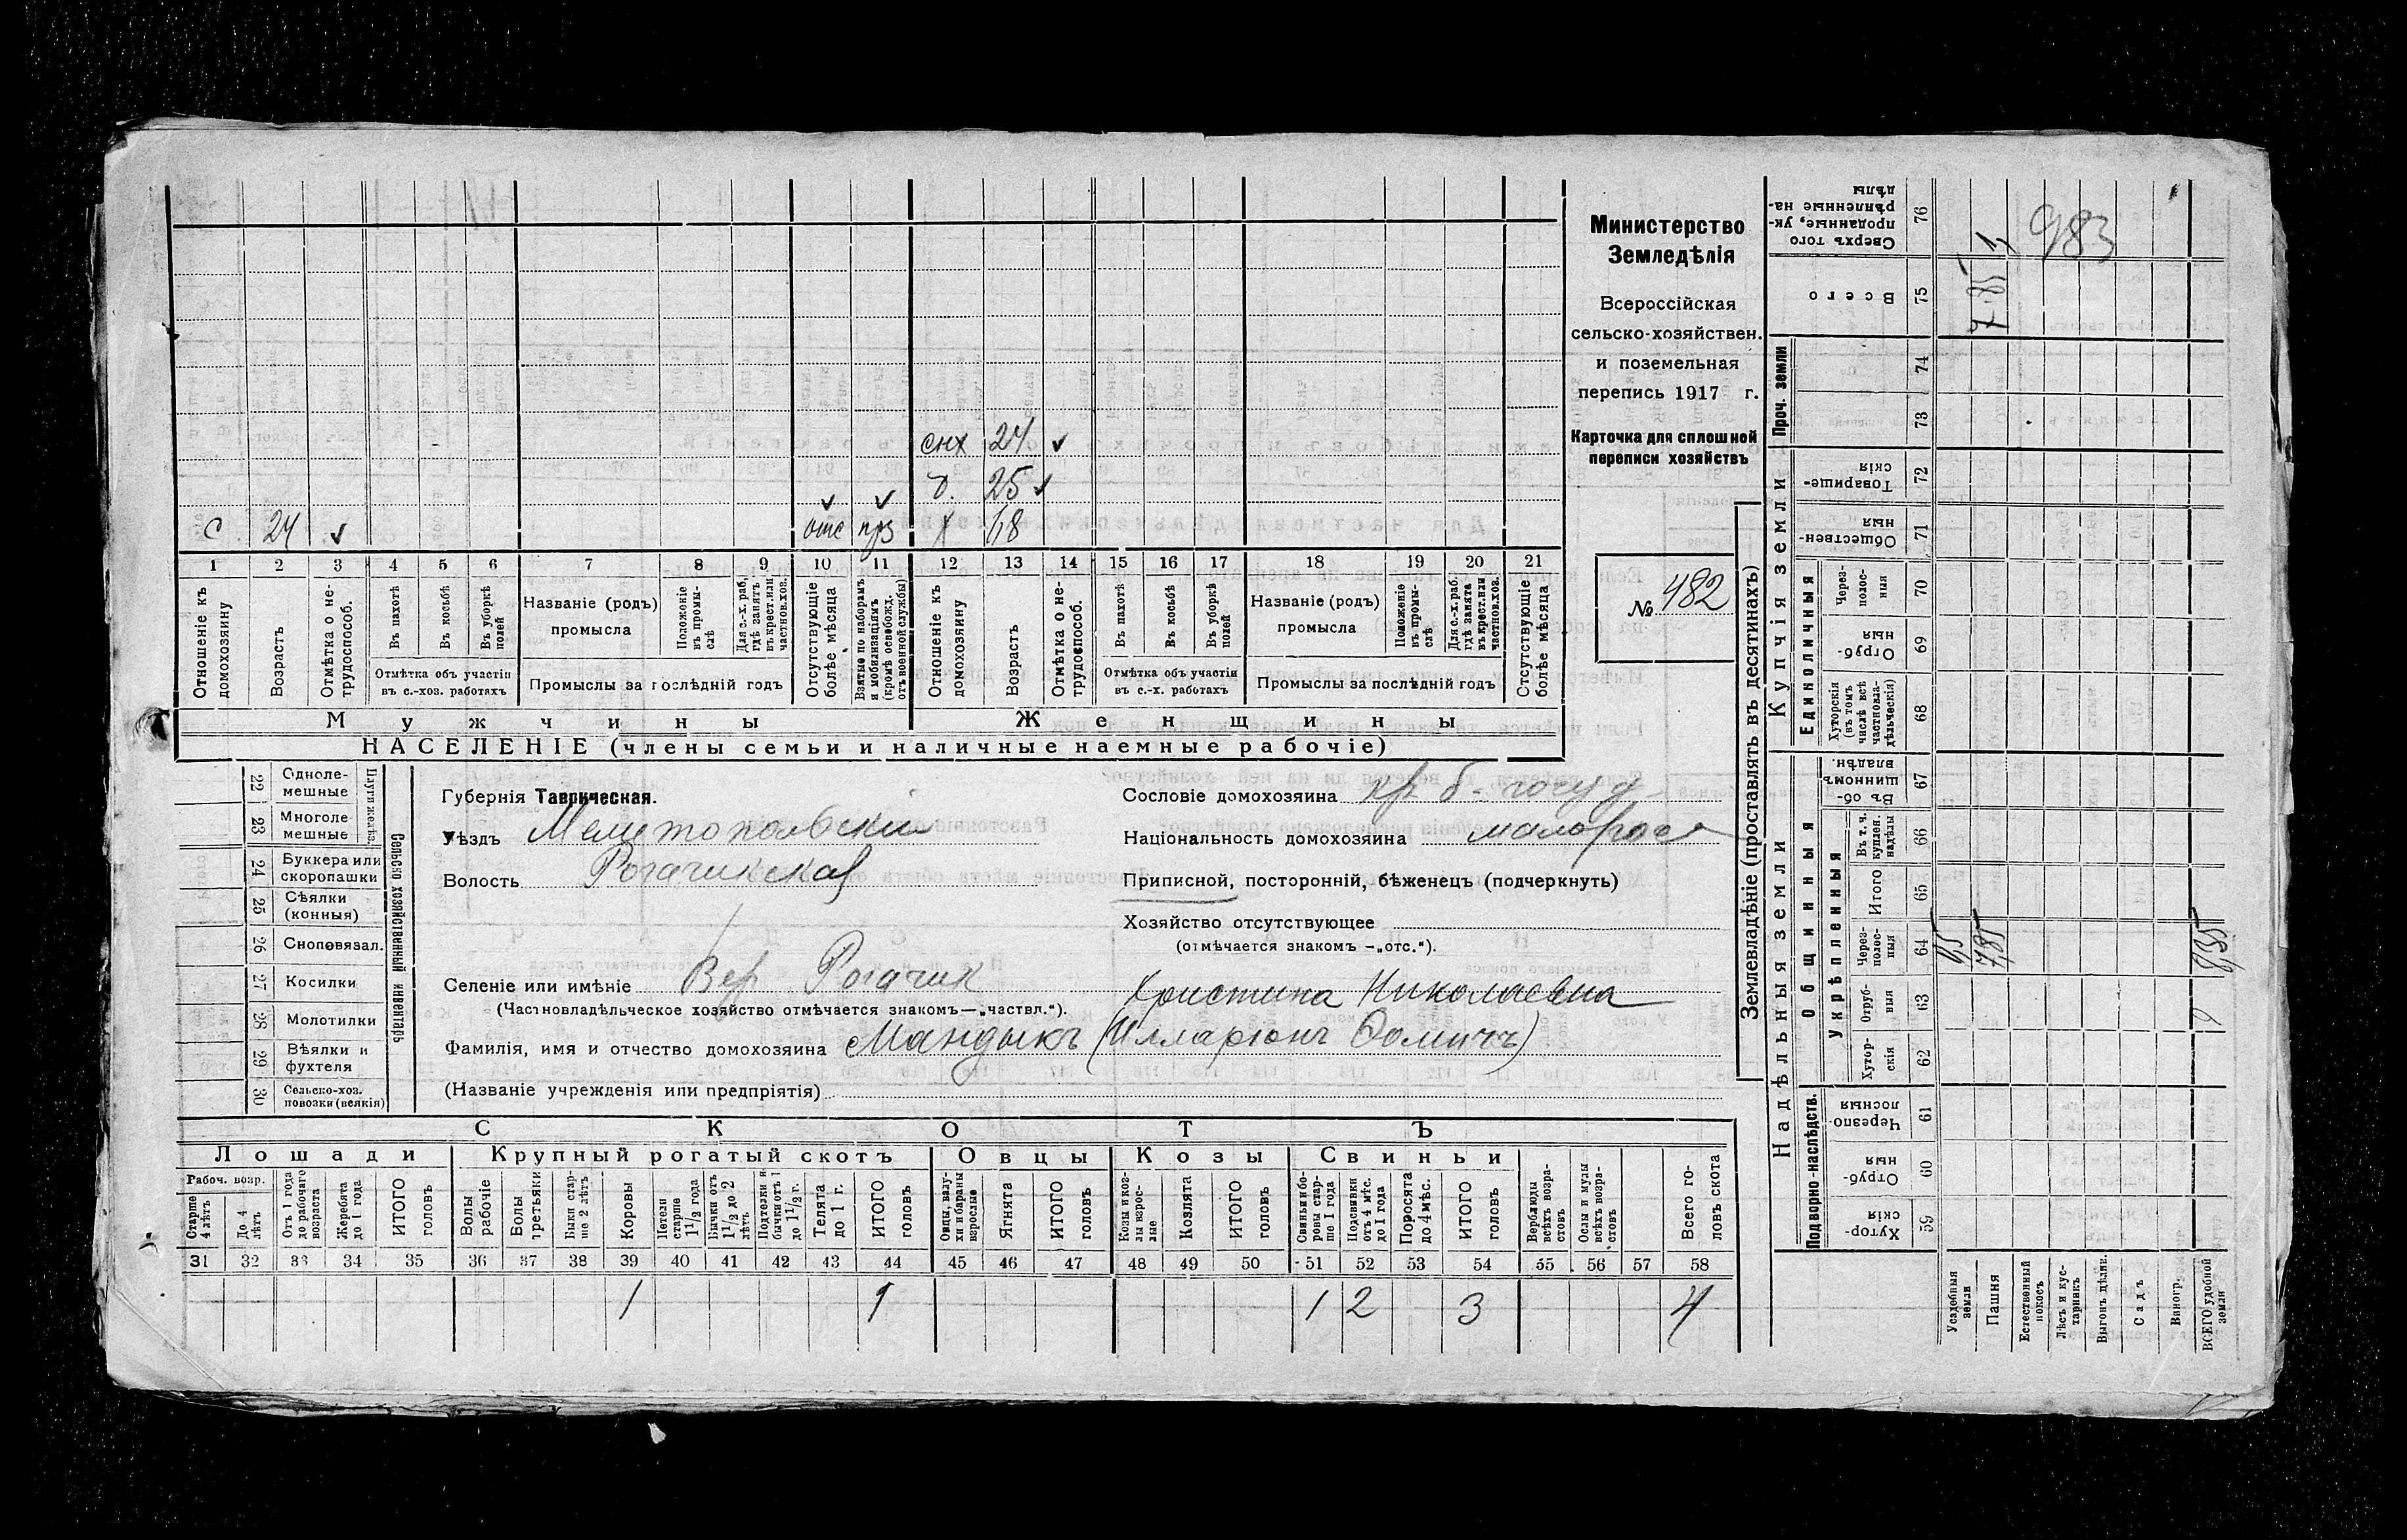 Министерство
Земледѣлія
Всероссійская
сельско-хозяйствен.
и поземельная
перепись 1917 г.
Карточка для сплошной
переписи хозяйствъ
№ 482
снх 24
25
с 24 отс 18
1 2 3 4 5 6 7 8 9 10 11 12 13 14 15 16 17 18 19 20 21
Отношеніе къ домохозяину
Возрастъ
Отмѣтка о нетрудоспособ.
Въ пахотѣ
Въ косьбѣ
Въ уборкѣ полей
Отмѣтка объ участіи
въ с.-хоз. работахъ
Названіе (родъ)
промысла
Положеніе въ промыслѣ
Для с.-х. раб, гдѣ занятъ въ крест. или частнов. хоз.
Промыслы за послѣдній годъ
Отсутствующіе болѣе мѣсяца
Взятые по наборамъ и мобилизаціямъ (кромѣ освобожд. отъ военной службы)
Отношеніе къ домохозяину
Возрастъ
Отмѣтка о нетрудоспособ.
Въ пахотѣ
Въ косьбѣ
Въ уборкѣ полей
Отмѣтка объ участіи
въ с.-х. работахъ
Названіе (родъ)
промысла
Положеніе въ промыслѣ
Для с.-х. раб. гдѣ занята въ крест. или частнов. хоз.
Промыслы за послѣдній годъ
Отсутствующіе болѣе мѣсяца
Мужчины Женщины
НАСЕЛЕНІЕ (члены семьи и наличные наемные рабочіе)
Сельско хозяйственный инвентарь
22 Однолемешные
23 Многолемешные
24 Буккера или скоропашки
25 Сѣялки (конныя)
26 Сноповязал.
27 Косилки
28 Молотилки
29 Вѣялки и фухтеля
30 Сельско-хоз. повозки (всякія)
Губернія Таврическая.
Уѣздъ Мелитопольскій
Волость Рогачикская
Селеніе или имѣніе Вер Рогачик
(Частновладѣльческое хозяйство отмѣчается знакомъ—„частвл.“).
Сословіе домохозяина кр б. госуд
Національность домохозяина малорос
Приписной, посторонній, бѣженецъ (подчеркнуть)
Хозяйство отсутствующее
(отмѣчается знакомъ —„отс.“).
Христина Николаевна
Фамилія, имя и отчество домохозяина Мандыкъ (Илларіонъ Фомичъ)
(Названіе учрежденія или предпріятія)
СКОТЪ
Лошади Крупный рогатый скотъ Овцы Козы Свиньи
Рабоч. возр.
Старше 4 лѣтъ
До 4 лѣтъ
Отъ 1 года до рабочаго возраста
Жеребята до 1 года
ИТОГО головъ
Волы рабочіе
Волы третьяки
Быки старше 2 лѣтъ
Коровы
Нетели старше 1 1/2 года
Бычки отъ 1 1/2 до 2 лѣтъ
Подтелки и бычки отъ 1 до 1 1/2 г.
Телята до 1 г.
ИТОГО головъ
Овцы, валухи и бараны взрослые
Ягнята
ИТОГО головъ
Козы и козлы взрослые
Козлята
ИТОГО головъ
Свиньи боровы старше 1 года
Подсвинки отъ 4 мѣс. до 1 года
Поросята до 4 мѣс.
ИТОГО головъ
Верблюды всѣхъ возрастовъ
Ослы и мулы всѣхъ возрастовъ
Всего головъ скота
31 32 33 34 35 36 37 38 39 40 41 42 43 44 45 46 47 48 49 50 51 52 53 54 55 56 57 58
1 1 1 2 3 4
Землевладѣніе (проставлять въ десятинахъ)
Надѣльныя земли
Купчія земли
Проч. земли
Подворно-наслѣдств.
Общинныя
Укрѣпленныя
Единоличныя
Хуторскія 59
Отрубныя 60
Черезполосныя 61
Хуторскія 62
Отрубныя 63
Черезполосныя 64
Итого 65
Въ т. ч. куплен. надѣлы 66
Въ общинномъ владѣн. 67
Хуторскія (въ томъ числѣ всѣ частновладѣльческія) 68
Отрубныя 69
Черезполосныя 70
Общественныя 71
Товарищескія 72
73
74
Всего 75
Сверхъ того проданные, укрѣпленные надѣлы 76
Усадебныя земли
Пашня 7,85 7.85
Естественный покосъ
Лѣсъ и кустарникъ
Выгонъ дѣлян.
Садъ
Виногр.
ВСЕГО удобной земли
983